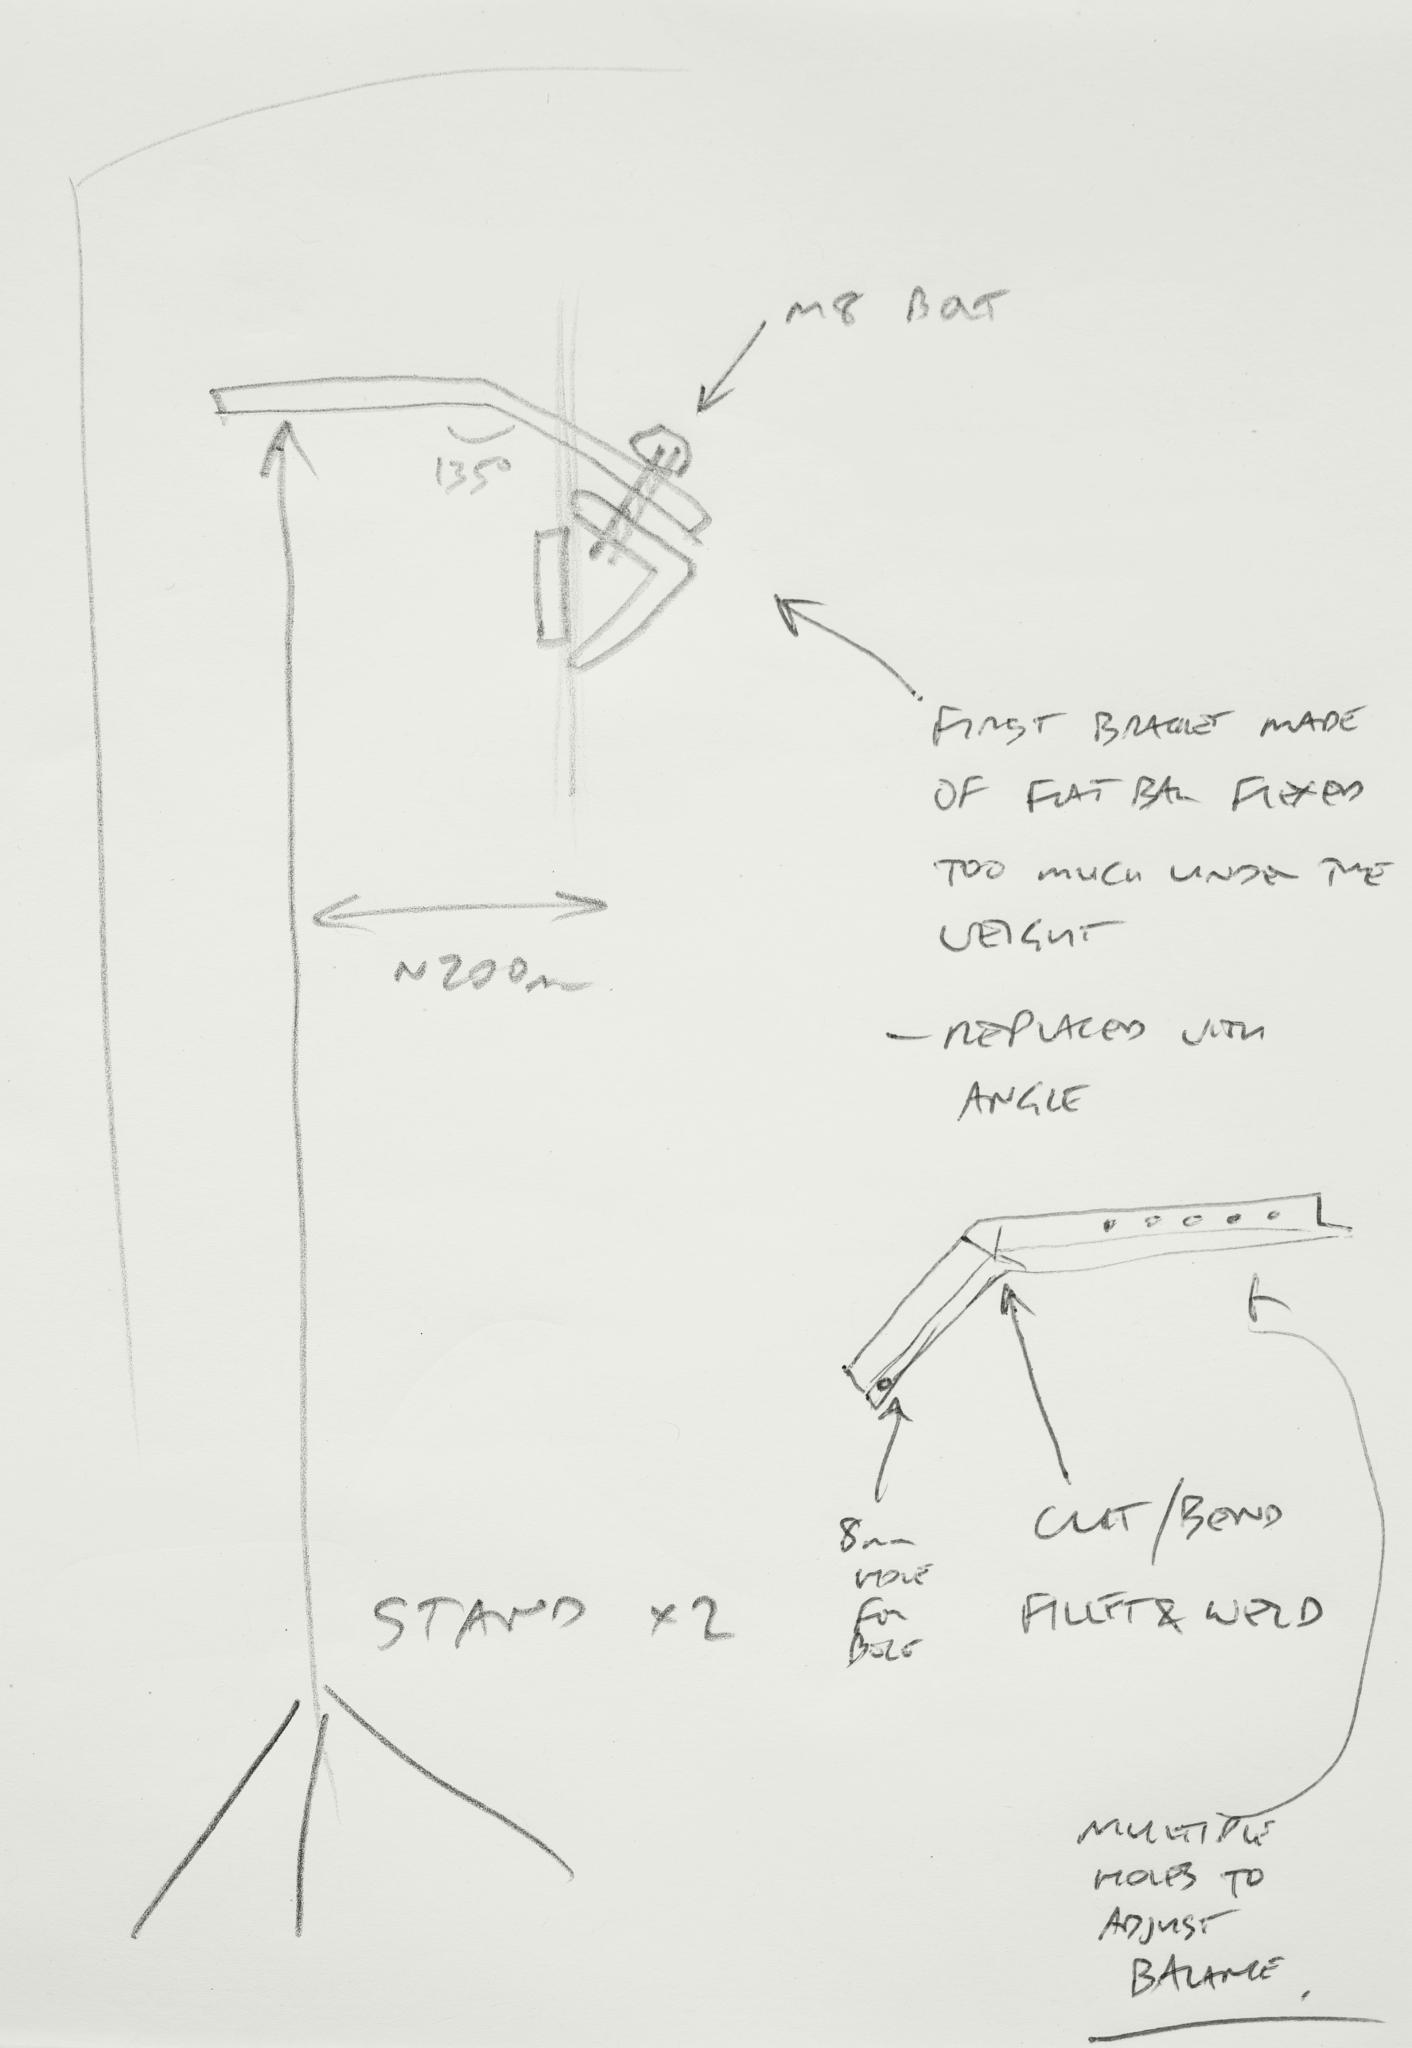 M8 BOLT
135°
FIRST BRACKET MADE
OF FLAT BAR FLEXED
TOO MUCH UNDER THE
WEIGHT
- REPLACED WITH
ANGLE
~200mm
8mm
HOLE
FOR
BOLT
CUT/BEND
FILLET & WELD
STAND x2
MULTIPLE
HOLES TO
ADJUST
BALANCE.